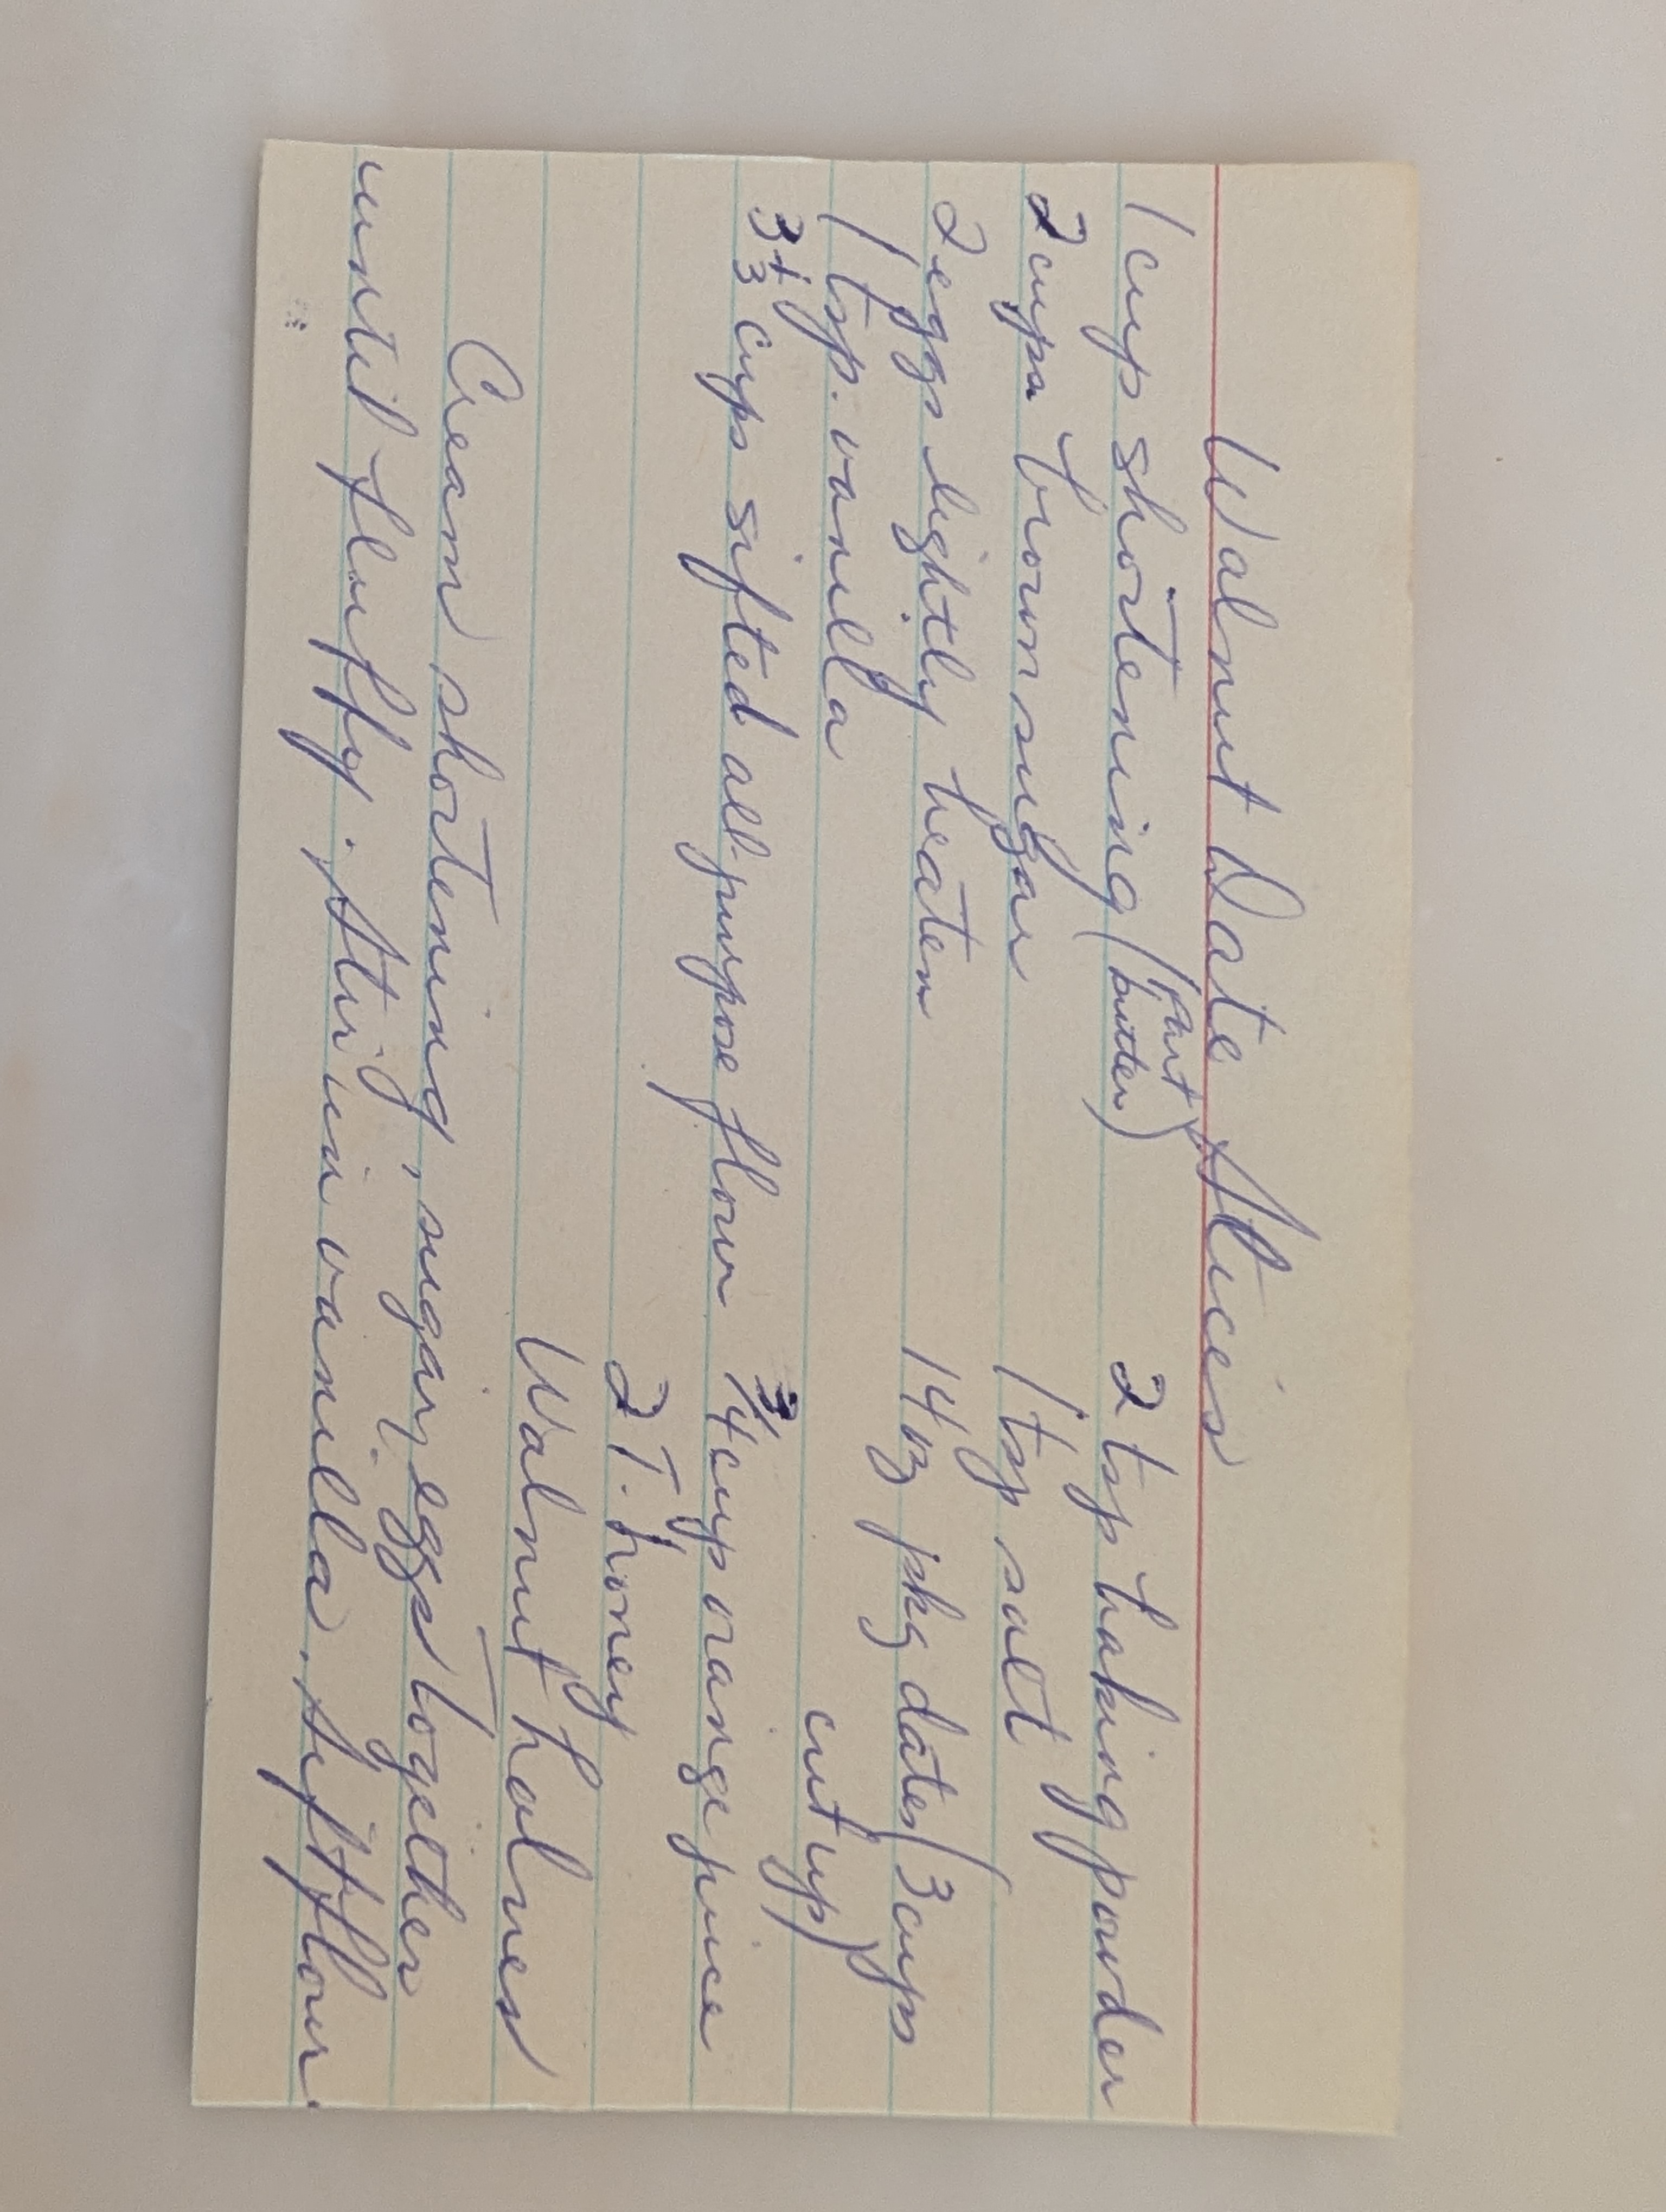 Walnut Date Slices
1 cup shortening (part butter) 2 tsp baking powder
2 cups brown sugar 1 tsp salt
2 eggs lightly beaten 14 oz pkg dates (3 cups
1 tsp. vanilla cut up)
3 1/3 cups sifted all-purpose flour 3/4 cup orange juice
2 T. honey
Walnut halves
Cream shortening, sugar, eggs together
until fluffy. Stir in vanilla. Sift flour